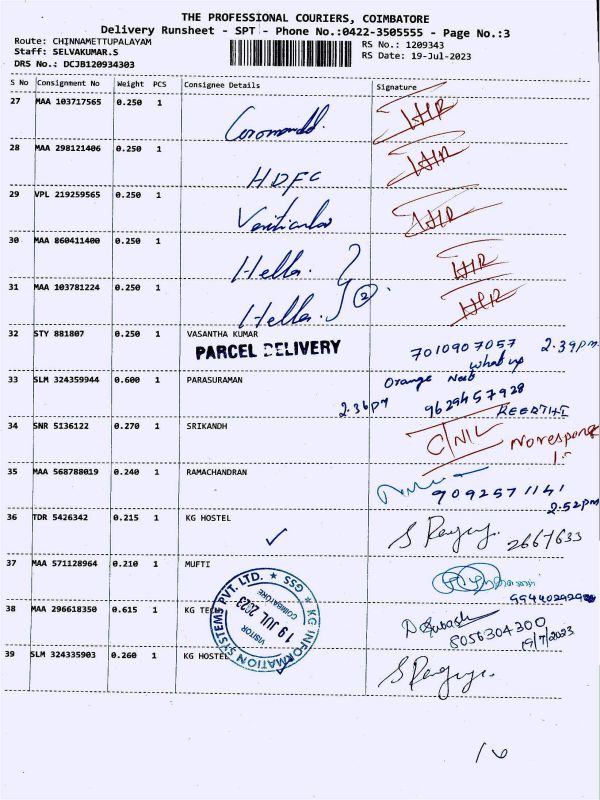 THE PROFESSIONAL COURIERS, COIMBATORE
Delivery Runsheet - SPT - Phone No.:0422-3505555 - Page No.:3
Route: CHINNAMETTUPALAYAM
RS No.: 1209343
Staff: SELVAKUMAR.S
RS Date: 19-Jul-2023
DRS No.: DCJB120934303
S No Consignment No Weight PCS Consignee Details Signature
27 MAA 103717565 0.250 1
28 MAA 298121406 0.250 1 HDFC
29 VPL 219259565 0.250 1
30 MAA 860411400 0.250 1 Hella.
31 MAA 103781224 0.250 1 Hella. 2
32 STY 881807 0.250 1 VASANTHA KUMAR
PARCEL DELIVERY
7010907057 2.39pm
33 SLM 324359944 0.600 1 PARASURAMAN
Orange
2.36pm 9629457928
KEERTHI
34 SNR 5136122 0.270 1 SRIKANDH
C/NIL
35 MAA 568788019 0.240 1 RAMACHANDRAN
9092571141
2.52pm
36 TDR 5426342 0.215 1 KG HOSTEL
2667633
37 MAA 571128964 0.210 1 MUFTI
38 MAA 296618350 0.615 1 KG TECH
D Subash
8056304300
19/7/2023
KG INFORMATION SYSTEMS PVT. LTD. ★ GSS ★
COIMBATORE
19 JUL 2023
VISITOR
39 SLM 324335903 0.260 1 KG HOSTEL